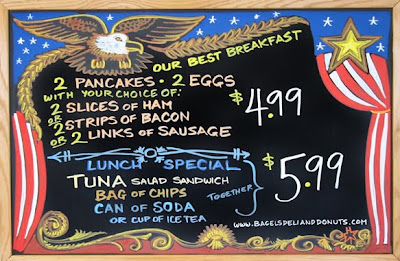 OUR BEST BREAKFAST
2 PANCAKES • 2 EGGS
WITH YOUR CHOICE OF:
2 SLICES OF HAM
OR 2 STRIPS OF BACON
OR 2 LINKS OF SAUSAGE
$4.99
LUNCH SPECIAL
TUNA SALAD SANDWICH
BAG OF CHIPS
CAN OF SODA
OR CUP OF ICE TEA
TOGETHER
$5.99
WWW.BAGELSDELIANDDONUTS.COM